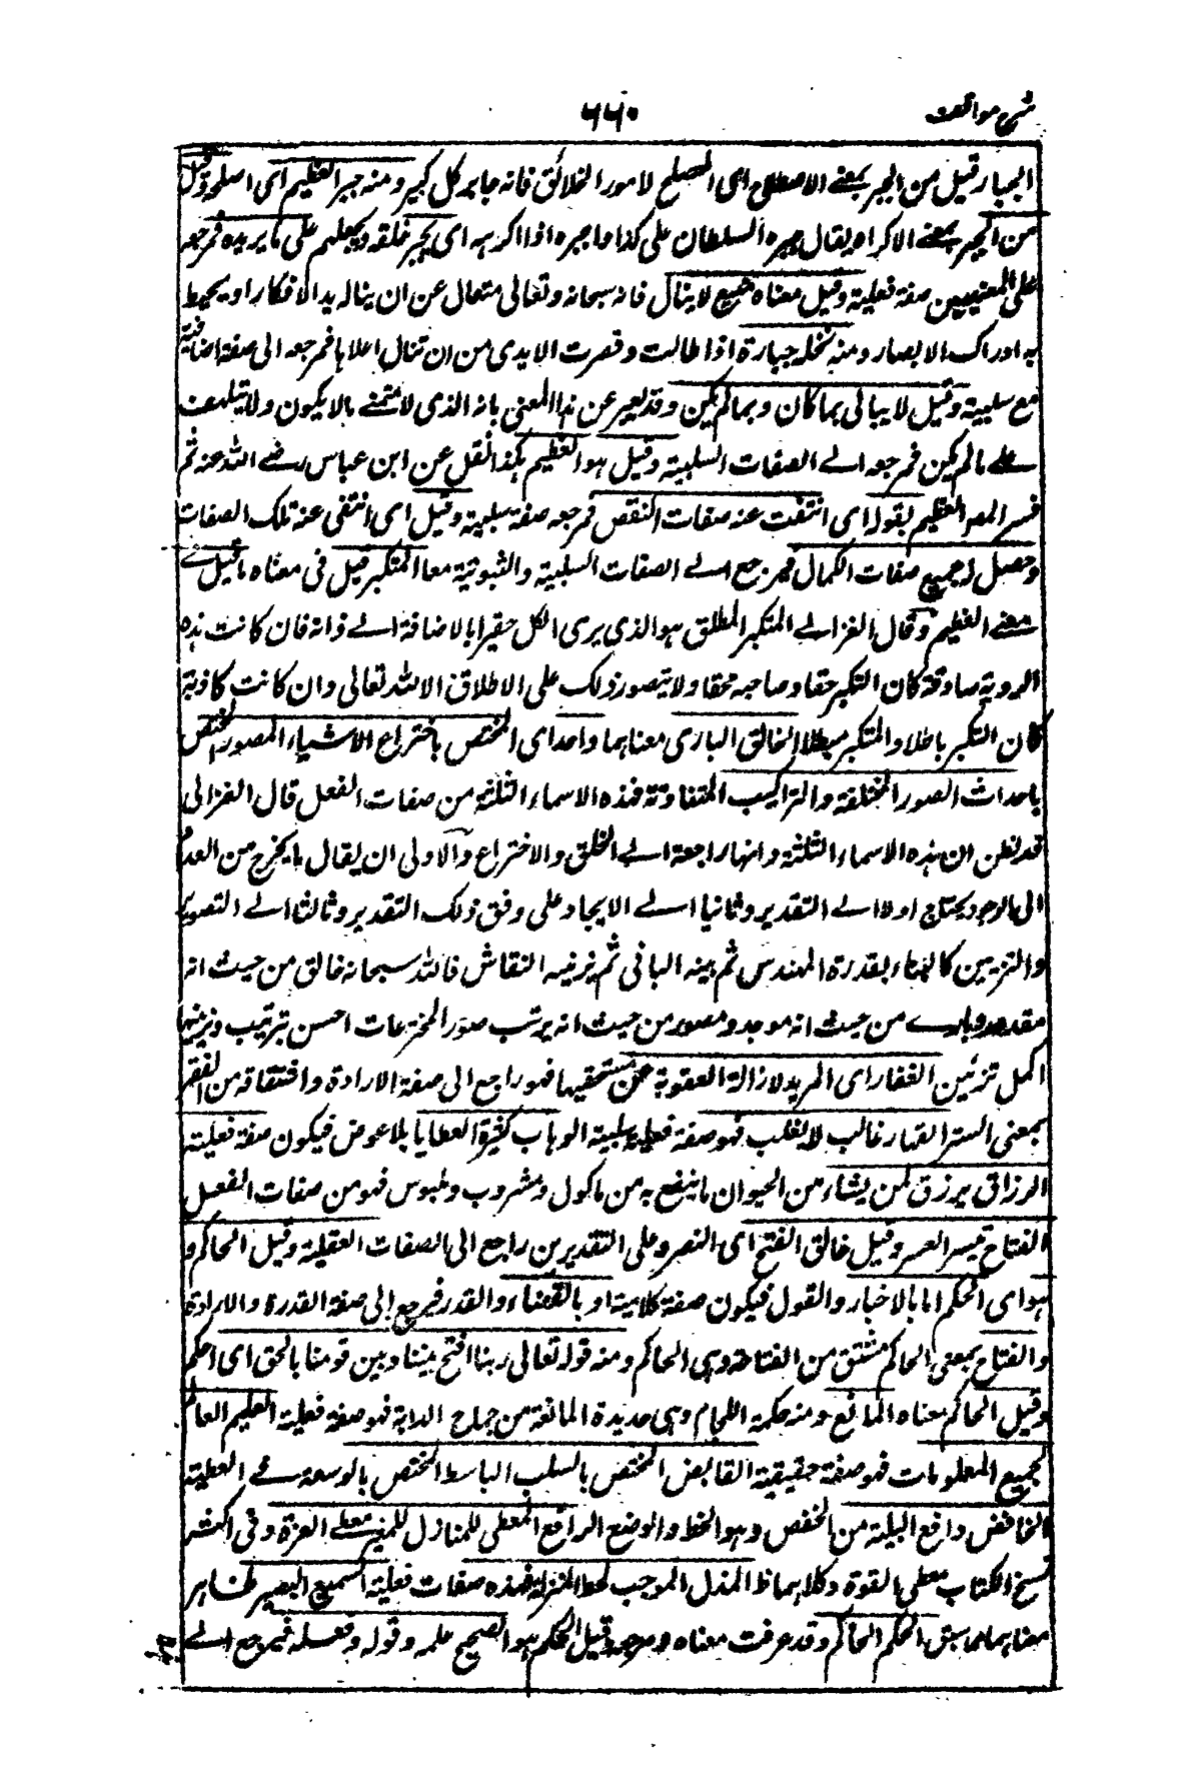 شرح مواقف
٦٦٠
الجبار قيل من الجبر بمعنى الاصلاح اى المصلح لامور الخلائق فانه جابر كل كسير ومنه جبر العظيم اى اصلحه وقيل
من الجبر بمعنى الاكراه يقال جبره السلطان على كذا واجبره اذا اكرهه اى يجبر خلقه ويحملهم على ما يريده فمرجعه
على المعنيين صفة فعلية وقيل معناه منيع لا ينال فانه سبحانه وتعالى متعال عن ان يناله يد الافكار او يحيط
به ادراك الابصار ومنه نخلة جبارة اذا طالت وقصرت الايدى من ان تنال اعلاها فمرجعه الى صفة اضافية
مع سلبية وقيل لا يبالى بما كان وبما لم يكن وقد يعبر عن هذا المعنى بانه الذى لا يتمنى ما لا يكون ولا يتلهف
على ما لم يكن فمرجعه الى الصفات السلبية وقيل هو العظيم هكذا نقل عن ابن عباس رضى الله عنه ثم
فسر المص العظيم بقوله اى انتفت عنه صفات النقص فمرجعه صفة سلبية وقيل اى انتفى عنه تلك الصفات
وحصل له جميع صفات الكمال فمرجع الى الصفات السلبية والثبوتية معا المتكبر قيل فى معناه ما قيل فى
معنى العظيم وقال الغزالى المتكبر المطلق هو الذى يرى الكل حقيرا بالاضافة الى ذاته فان كانت هذه
الروية صادقة كان التكبر حقا وصاحبه محقا ولا يتصور ذلك على الاطلاق الا لله تعالى وان كانت كاذبة
كان التكبر باطلا والمتكبر مبطلا الخالق البارى معناهما واحد اى المختص باختراع الاشياء المصور المختص
باحداث الصور المختلفة والتراكيب المتفاوتة فهذه الاسماء الثلثة من صفات الفعل قال الغزالى
قد يظن ان هذه الاسماء الثلثة وانها راجعة الى الخلق والاختراع والاولى ان يقال ما يخرج من العدم
الى الوجود يحتاج اولا الى التقدير وثانيا الى الايجاد على وفق ذلك التقدير وثالثا الى التصوير
والتزيين كالبناء يقدره المهندس ثم يبنيه البانى ثم يزينه النقاش فالله سبحانه خالق من حيث انه
مقدر وبارى من حيث انه موجد ومصور من حيث انه يرتب صور المخترعات احسن ترتيب ويزينها
اكمل تزئين الغفار اى المريد لازالة العقوبة عن مستحقيها فهو راجع الى صفة الارادة واشتقاقه من الغفر
بمعنى الستر القهار غالب لا يغلب فهو صفة فعلية سلبية الوهاب كثير العطايا بلا عوض فيكون صفة فعلية
الرزاق يرزق لمن يشاء من الحيوان ما ينتفع به من ماكول ومشروب وملبوس فهو من صفات الفعل
الفتاح ميسر العسير وقيل خالق الفتح اى النصر وعلى التقديرين راجع الى الصفات الفعلية وقيل الحاكم و
هو اى الحكم اما بالاخبار والقول فيكون صفة كلامية او بالقضاء والقدر فيرجع الى صفة القدرة والارادة
والفتاح بمعنى الحاكم مشتق من الفتاحة وهى الحاكم ومنه قوله تعالى ربنا افتح بيننا وبين قومنا بالحق اى احكم
وقيل الحاكم معناه المانع ومنه حكمة اللجام وهى حديدة المانعة من جماح الدابة فهو صفة فعلية العليم العالم
لجميع المعلومات فهو صفة حقيقية القابض المختص بالسلب الباسط المختص بالوسعة فى العطية
الخافض دافع البلية من الخفض وهو الحط والوضع الرافع المعطى للمنازل المعز معطى العزة وفى اكثر
نسخ الكتاب معطى القوة وكلاهما ظ المذل الموجب لحط المنزلة فهذه صفات فعلية السميع البصير ظاهر
معناهما مما سبق الحكم الحاكم وقد عرفت معناه ومرجعه وقيل الحكم هو الصحيح علمه وقوله وفعله فيرجع الى